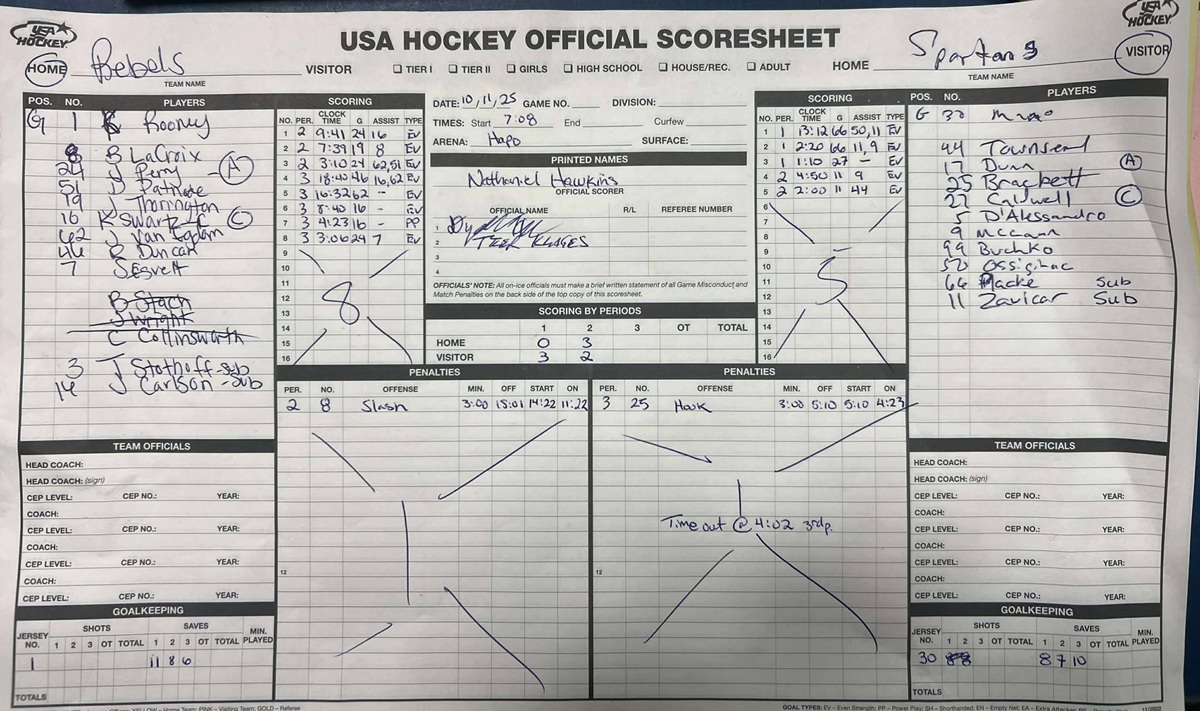 USA HOCKEY
USA HOCKEY OFFICIAL SCORESHEET
USA HOCKEY
HOME Rebels VISITOR ☐ TIER I ☐ TIER II ☐ GIRLS ☐ HIGH SCHOOL ☐ HOUSE/REC. ☐ ADULT HOME Spartans VISITOR
TEAM NAME
TEAM NAME
POS. NO. PLAYERS
G 1 Rooney
8 B LaCroix
24 J Perry (A)
51 D Patnode
19 J Thorington
16 K Swartz (C)
62 J Van Egdom
46 R Duncan
7 J Esvelt
B Stach
J Wright
C Collinsworth
3 J Stothoff-sub
14 J Carlson-sub
SCORING
NO. PER. CLOCK TIME G ASSIST TYPE
1 2 9:41 24 16 EV
2 2 7:39 19 8 EV
3 2 3:10 24 62,51 EV
4 3 18:40 46 16,62 EV
5 3 16:32 62 - EV
6 3 8:40 16 - EV
7 3 4:23 16 - PP
8 3 3:06 24 7 EV
9
10
11
12
13
14
15
16
8
DATE: 10,11,25 GAME NO. DIVISION:
TIMES: Start 7:08 End Curfew
ARENA: Hapo SURFACE:
PRINTED NAMES
Nathaniel Hawkins
OFFICIAL SCORER
OFFICIAL NAME R/L REFEREE NUMBER
1
2 KLAGES
3
4
OFFICIALS' NOTE: All on-ice officials must make a brief written statement of all Game Misconduct and
Match Penalties on the back side of the top copy of this scoresheet.
SCORING BY PERIODS
1 2 3 OT TOTAL
HOME 0 3
VISITOR 3 2
SCORING
NO. PER. CLOCK TIME G ASSIST TYPE
1 1 13:12 66 50,11 EV
2 1 2:20 66 11,9 EV
3 1 1:10 27 - EV
4 2 4:50 11 9 EV
5 2 2:00 11 44 EV
6
7
8
9
10
11
12
13
14
15
16
5
POS. NO. PLAYERS
G 30
44 Townsend
17 Dunn (A)
25 Brackett
27 Caldwell (C)
5 D'Alessandro
9 McCann
99 Buchko
66 Macke Sub
11 Zavicar Sub
PENALTIES
PER. NO. OFFENSE MIN. OFF START ON
2 8 Slash 3:00 15:01 14:22 11:22
12
PENALTIES
PER. NO. OFFENSE MIN. OFF START ON
3 25 Hook 3:00 5:10 5:10 4:23
Time out @ 4:02 3rd p.
12
TEAM OFFICIALS
HEAD COACH:
HEAD COACH: (sign)
CEP LEVEL: CEP NO.: YEAR:
COACH:
CEP LEVEL: CEP NO.: YEAR:
COACH:
CEP LEVEL: CEP NO.: YEAR:
COACH:
CEP LEVEL: CEP NO.: YEAR:
GOALKEEPING
JERSEY NO. SHOTS 1 2 3 OT TOTAL SAVES 1 2 3 OT TOTAL MIN. PLAYED
1 11 8 6
TOTALS
TEAM OFFICIALS
HEAD COACH:
HEAD COACH: (sign)
CEP LEVEL: CEP NO.: YEAR:
COACH:
CEP LEVEL: CEP NO.: YEAR:
COACH:
CEP LEVEL: CEP NO.: YEAR:
COACH:
CEP LEVEL: CEP NO.: YEAR:
GOALKEEPING
JERSEY NO. SHOTS 1 2 3 OT TOTAL SAVES 1 2 3 OT TOTAL MIN. PLAYED
30 8 7 10
TOTALS